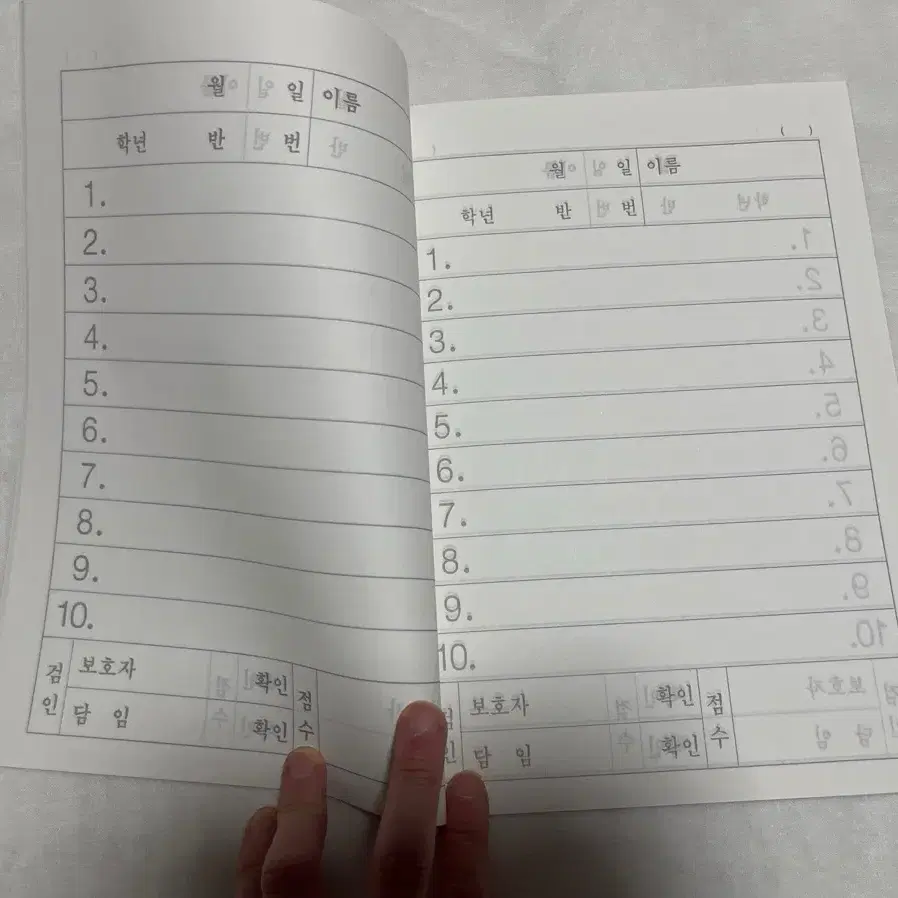 월 일 이름
학년 반 번
1.
2.
3.
4.
5.
6.
7.
8.
9.
10.
검인 보호자 확인 점수
담 임 확인
( )
월 일 이름
학년 반 번
1.
2.
3.
4.
5.
6.
7.
8.
9.
10.
검인 보호자 확인 점수
담 임 확인